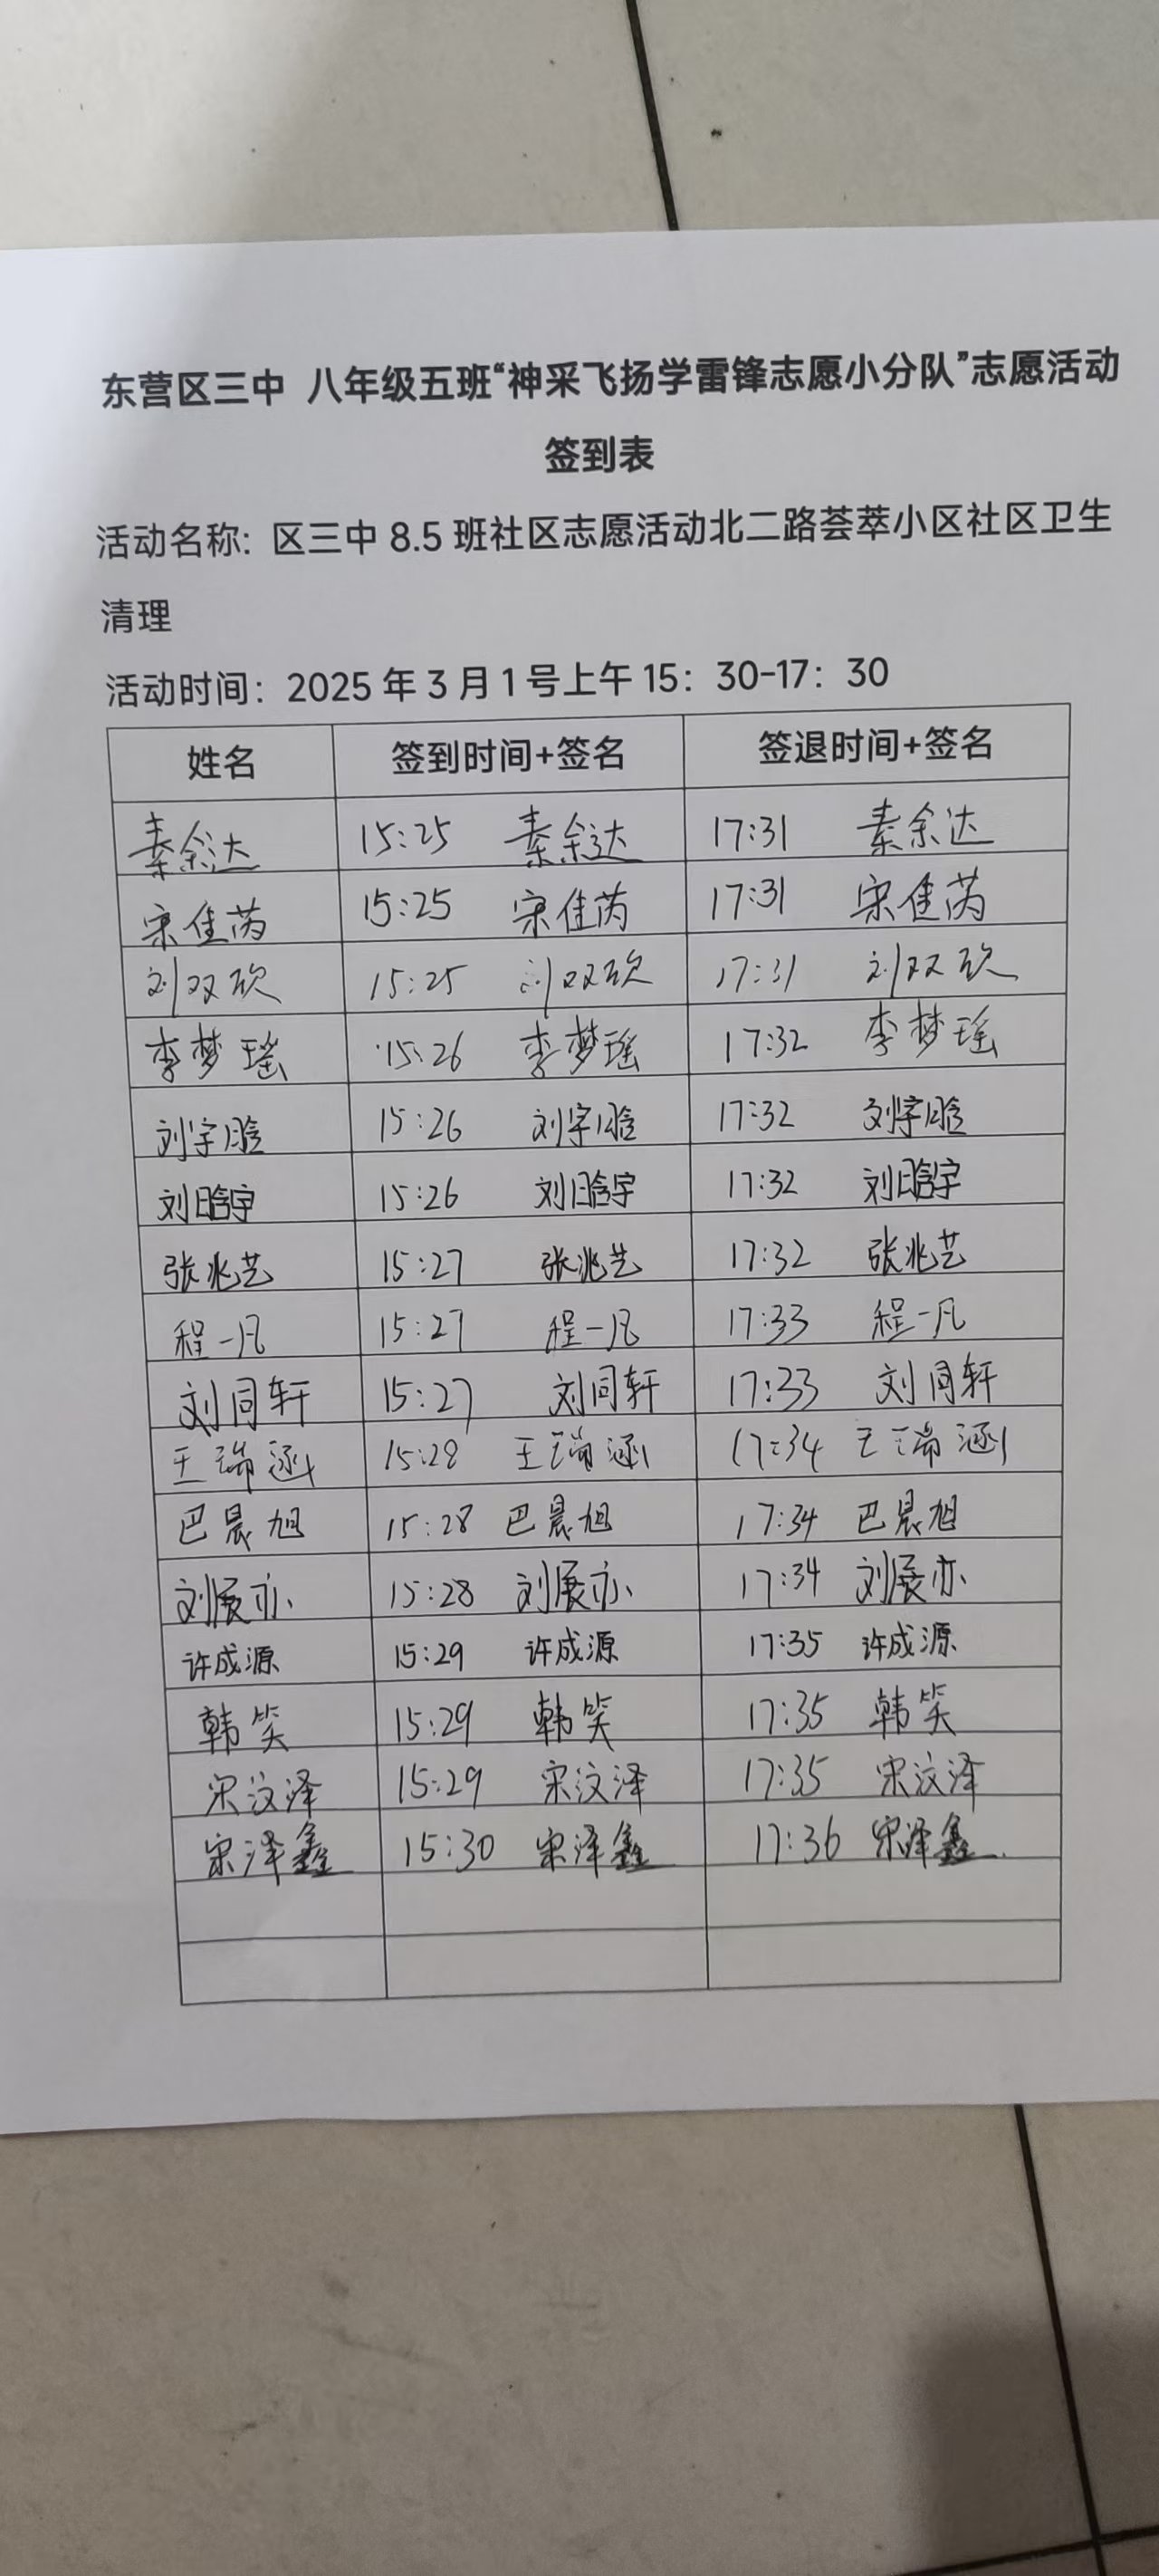 东营区三中 八年级五班“神采飞扬学雷锋志愿小分队”志愿活动
签到表
活动名称: 区三中 8.5 班社区志愿活动北二路荟萃小区社区卫生
清理
活动时间：2025 年 3 月 1 号上午 15：30-17：30
姓名 签到时间+签名 签退时间+签名
秦余达 15:25 秦余达 17:31 秦余达
宋佳芮 15:25 宋佳芮 17:31 宋佳芮
刘双欣 15:25 刘双欣 17:31 刘双欣
李梦瑶 15:26 李梦瑶 17:32 李梦瑶
刘宇晗 15:26 刘宇晗 17:32 刘宇晗
刘晗宇 15:26 刘晗宇 17:32 刘晗宇
张兆艺 15:27 张兆艺 17:32 张兆艺
程一凡 15:27 程一凡 17:33 程一凡
刘同轩 15:27 刘同轩 17:33 刘同轩
王瑞涵 15:28 王瑞涵 17:34 王瑞涵
巴晨旭 15:28 巴晨旭 17:34 巴晨旭
刘展亦 15:28 刘展亦 17:34 刘展亦
许成源 15:29 许成源 17:35 许成源
韩笑 15:29 韩笑 17:35 韩笑
宋汶泽 15:29 宋汶泽 17:35 宋汶泽
宋泽鑫 15:30 宋泽鑫 17:36 宋泽鑫